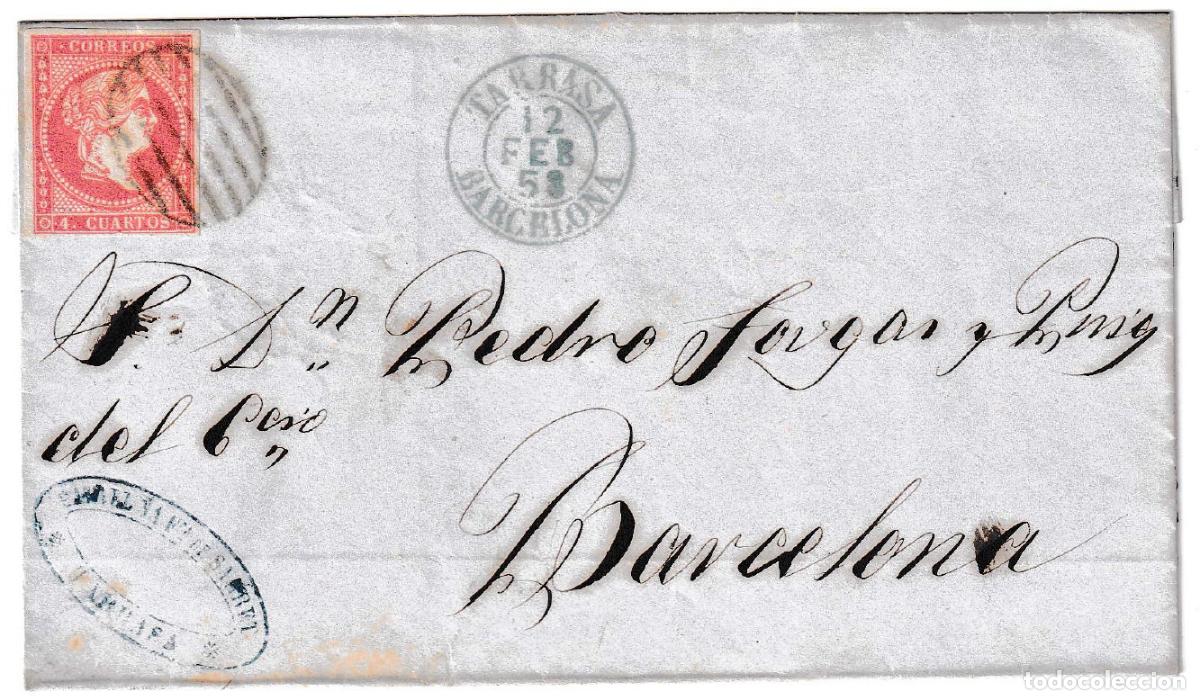 CORREOS
4. CUARTOS
TARRASA
12
FEB
58
BARCELONA
S. Dn. Pedro Forgas y Puig
del Ccio
Barcelona
TARRASA
todocoleccion